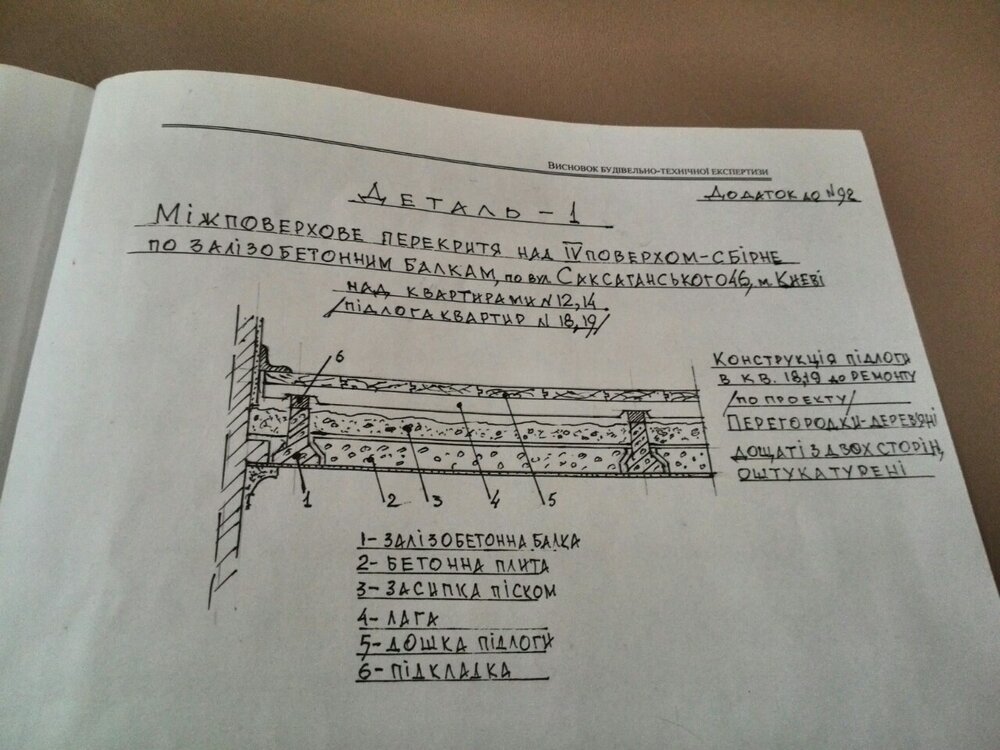 ВИСНОВОК БУДІВЕЛЬНО-ТЕХНІЧНОЇ ЕКСПЕРТИЗИ
ДОДАТОК ДО №92
ДЕТАЛЬ-1
МІЖПОВЕРХОВЕ ПЕРЕКРИТЯ НАД IV ПОВЕРХОМ-СБІРНЕ
ПО ЗАЛІЗОБЕТОННИМ БАЛКАМ, по вул. САКСАГАНСЬКОГО 46, м. КИЕВІ
НАД КВАРТИРАМИ N 12, 14
/ПІДЛОГА КВАРТИР N 18, 19/
КОНСТРУКЦІЯ ПІДЛОГИ
В КВ. 18,19 ДО РЕМОНТУ
/ПО ПРОЕКТУ/
ПЕРЕГОРОДКИ-ДЕРЕВ'ЯНІ
ДОЩАТІ З ДВОХ СТОРІН,
ОШТУКАТУРЕНІ
6
1 2 3 4 5
1-ЗАЛІЗОБЕТОННА БАЛКА
2-БЕТОННА ПЛИТА
3-ЗАСИПКА ПІСКОМ
4-ЛАГА
5-ДОШКА ПІДЛОГИ
6-ПІДКЛАДКА